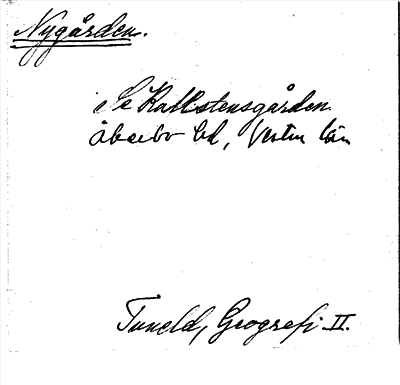 Nygården.
Se Kalkstensgården
Åkerbo hd, Vestm län
Tuneld, Geografi II.